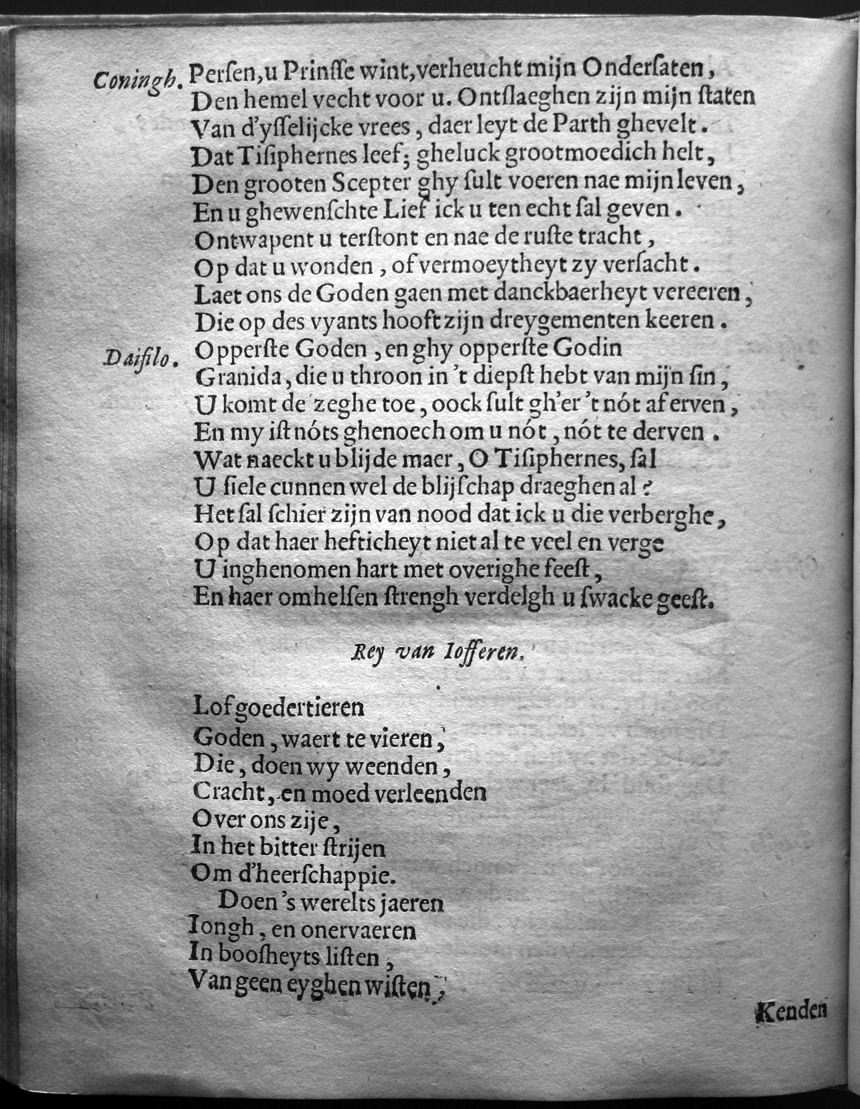 Coningh. Perſen, u Prinſſe wint, verheucht mijn Onderſaten,
Den hemel vecht voor u. Ontſlaeghen zijn mijn ſtaten
Van d'yſſelijcke vrees, daer leyt de Parth ghevelt.
Dat Tiſiphernes leef; gheluck grootmoedich helt,
Den grooten Scepter ghy ſult voeren nae mijn leven,
En u ghewenſchte Lief ick u ten echt ſal geven.
Ontwapent u terſtont en nae de ruſte tracht,
Op dat u wonden, of vermoeytheyt zy verſacht.
Laet ons de Goden gaen met danckbaerheyt vereeren,
Die op des vyants hooft zijn dreygementen keeren.
Daiſilo. Opperſte Goden, en ghy opperſte Godin
Granida, die u throon in 't diepſt hebt van mijn ſin,
U komt de zeghe toe, oock ſult gh'er 't nót af erven,
En my iſt nóts ghenoech om u nót, nót te derven.
Wat naeckt u blijde maer, O Tiſiphernes, ſal
U ſiele cunnen wel de blijſchap draeghen al?
Het ſal ſchier zijn van nood dat ick u die verberghe,
Op dat haer hefticheyt niet al te veel en verge
U inghenomen hart met overighe feeſt,
En haer omhelſen ſtrengh verdelgh u ſwacke geeſt.
Rey van Iofferen.
Lof goedertieren
Goden, waert te vieren,
Die, doen wy weenden,
Cracht, en moed verleenden
Over ons zije,
In het bitter ſtrijen
Om d'heerſchappie.
Doen 's werelts jaeren
Iongh, en onervaeren
In booſheyts liſten,
Van geen eyghen wiſten,
Kenden